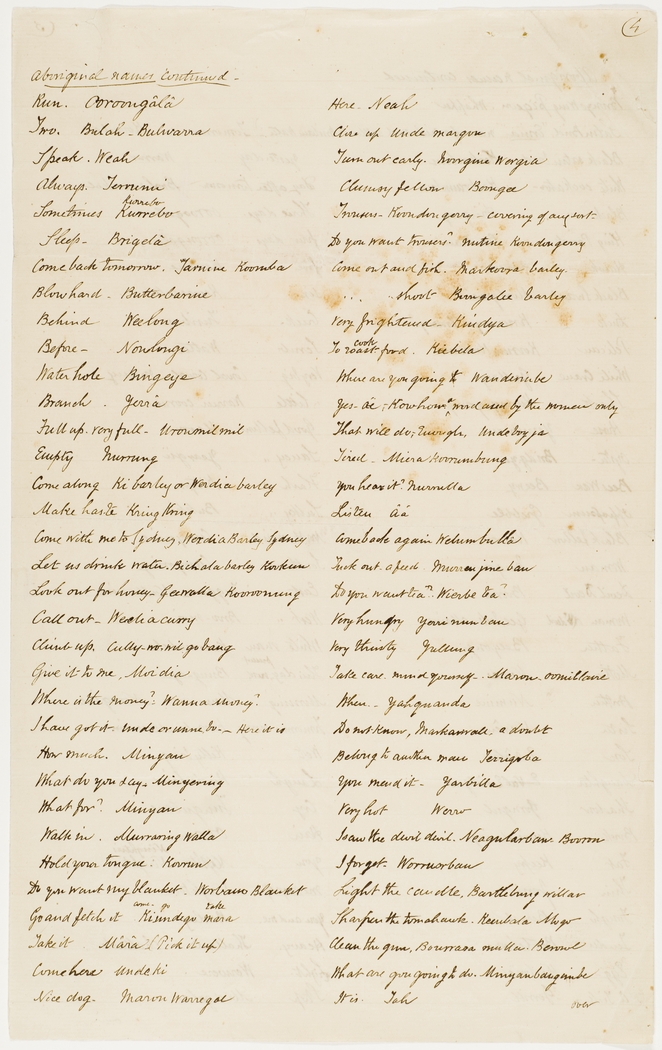 4
Aboriginal names continued -
Run. Ooroongālā
Two. Bulah - Bulwarra
Speak. Weah
Always. Terruni
Kurrebo
Sometimes Kurrebo
Sleep - Brigelā
Come back tomorrow. Tamine Koomba
Blow hard - Butterbarine
Behind Weelong
Before - Nowlongi
Water hole Bingeye
Branch - Yerrā
Full up. very full - Uronmilmil
Empty Murrung
Come along Ki barley or Wordia barley
Make haste Kring Kring
Come with me to Sydney. Wordia Barley Sydney
Let us drink water. Bichala barley Kookun
Look out for honey - Geewalla Kooroonung
Call out - Weelia curry
Climb up. Cully-wo-wil go bang
Give it to me, Moidia
Where is the money? Wanna money?
I have got it. unde or unne bo - Here it is
How much. Minyan
What do you say - Minyering
What for? Minyan
Walk in. Murraring Walla
Hold your tongue: Korrun
Do you want my blanket. Worbaus Blanket
come. go take
Go and fetch it Kiundego mara
Take it Māra (Pick it up)
Come here Unde ki
Nice dog. Maron Warregal
Here - Noah
Close up Unde margon
Turn out early. Norrgine Worgia
Clumsy fellow Boongee
Trousers - Koondongerry - covering of any sort.
Do you want trousers? Mutine Koondongerry
Come out and fish. Markoora barley.
. . . . shoot Bungalee barley
Very frightened - Kindya
cook
To roast food. Kiebela
Where are you going to Wandeniebe
Yes - āe; "Kowhom" word used by the women only
That will do; Enough, Undebryja
Tired - Miera Korrumbung
You hear it? Nurrulla
Listen āā
Come back again Welumbulla
Tuck out a feed. Murrenjine bau
Do you want tea? Wierbe tea?
Very hungry Yorrinunbau
Very thirsty Yullung
Take care. mind yourself - Maron-oomillivie
When - Yalquanda
Do not know, Markawall. a doubt
Belong to another man Terrigoba
You mend it - Yarbilla
Very hot Werro
I saw the devil devil. Neagularbau. Booron
I forget - Worrusrbau
Light the candle, Bartlebung willar
Sharpen the tomahawk. Keerbala Mogo
Clean the gun, Bourrasa mulla. Berowl
What are you going to do. Minyanbaugunbe
It is. Yah
over